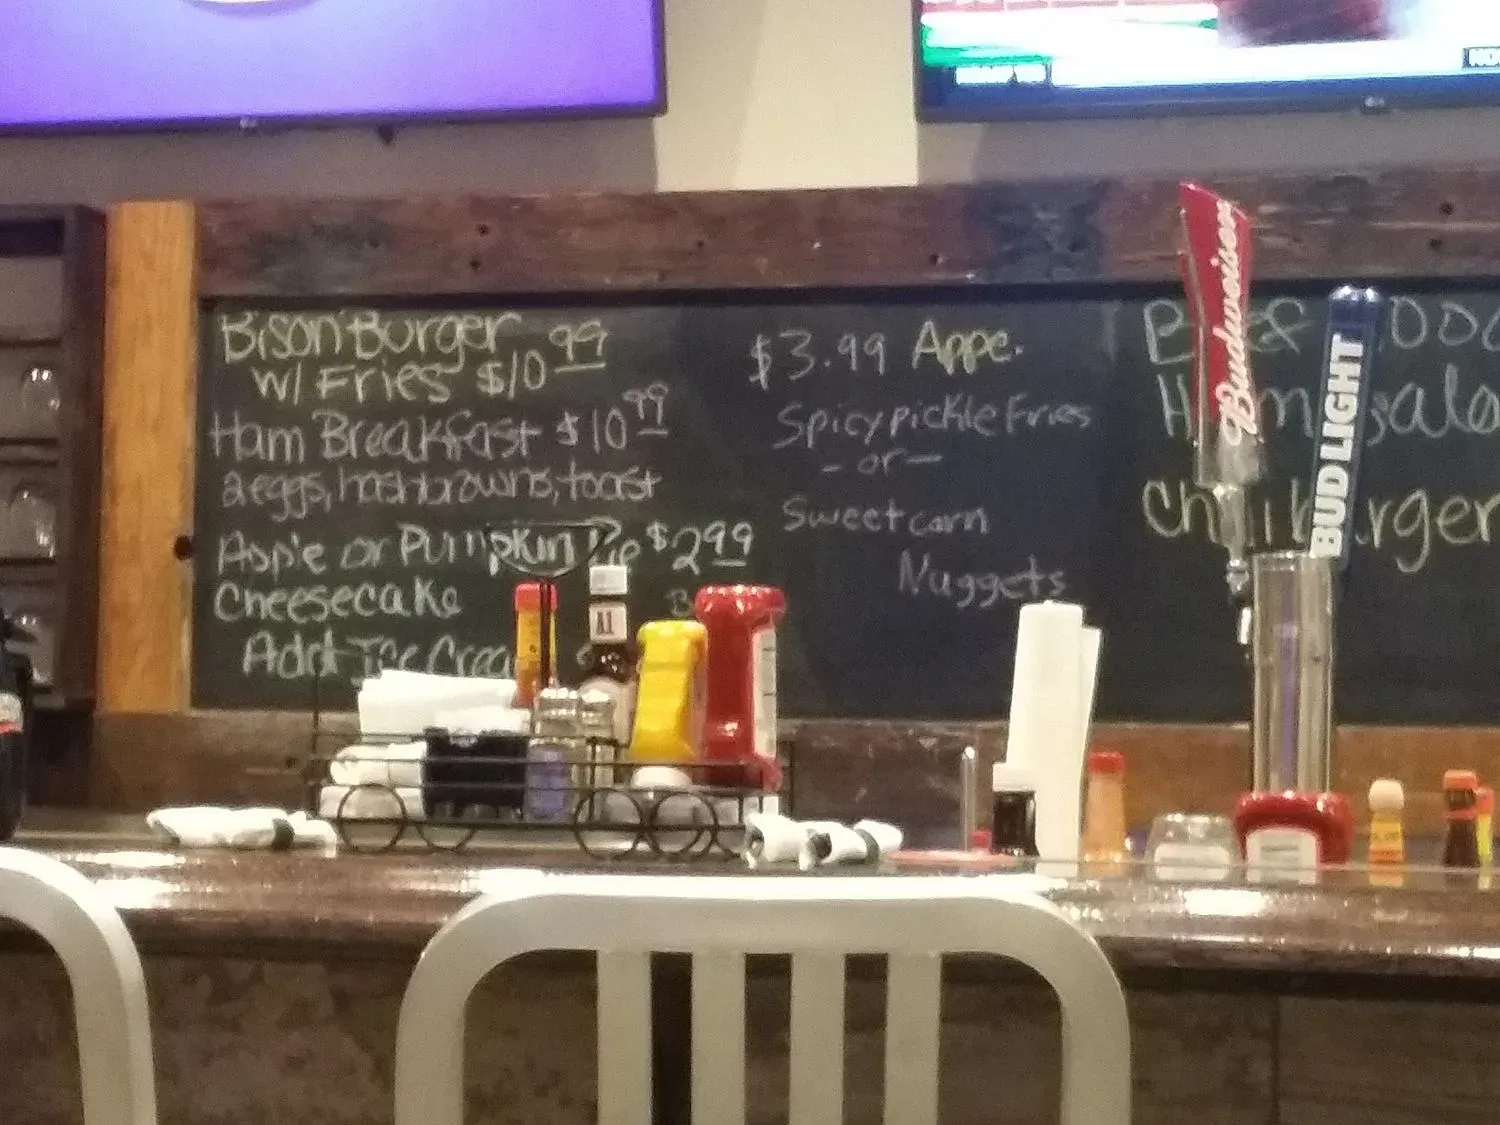 Bison Burger 99
w/ Fries $10
Ham Breakfast $10 99
2 eggs, hashbrowns, toast
Apple or Pumpkin Pie $2 99
Cheesecake
Add Ice Crea
$3.99 Appe.
Spicy pickle Fries
- or -
Sweet corn
Nuggets
Budweiser
BUD LIGHT
A1